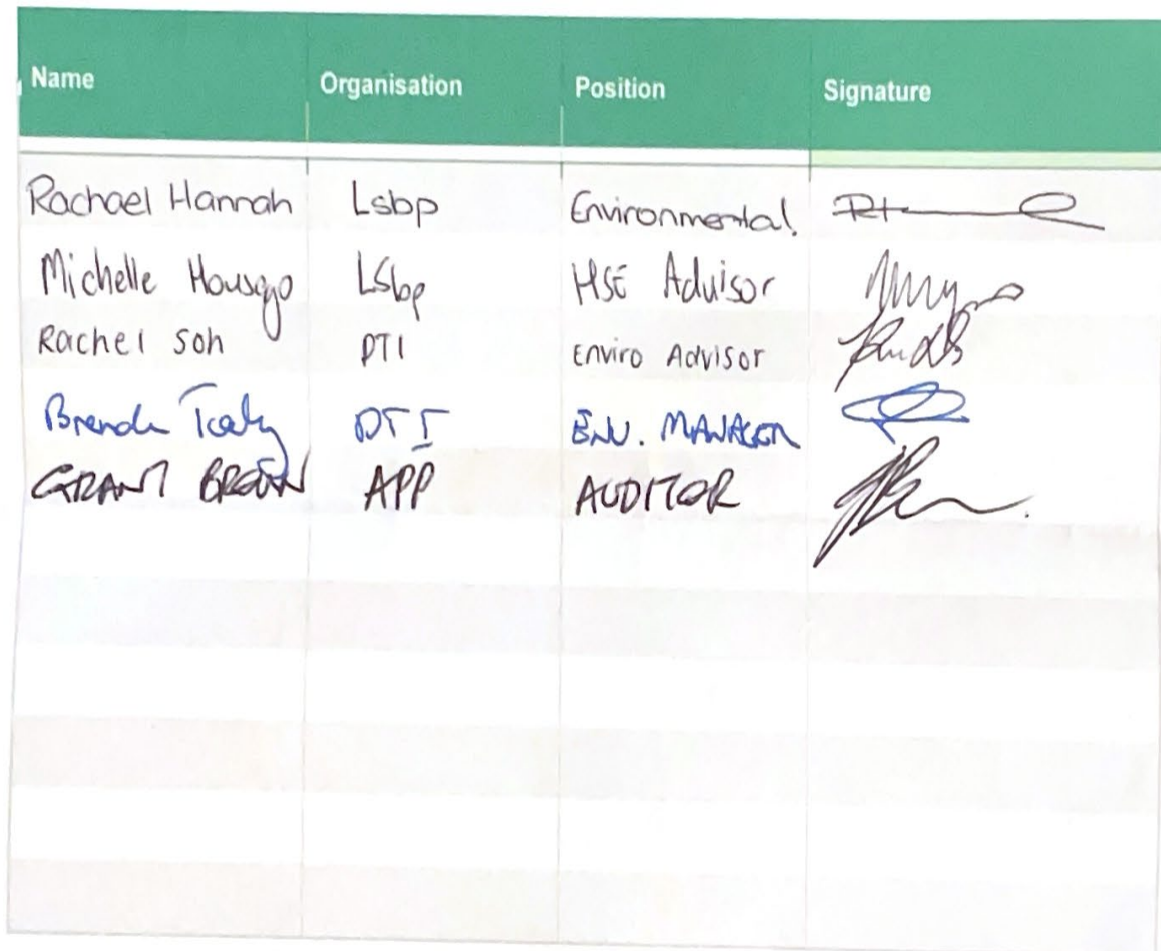 Name Organisation Position Signature
Rachael Hannah Lsbp Environmental.
Michelle Housgo LSbp HSE Advisor
Rachel Soh DTI Enviro Advisor
DTI ENV. MANAGER
GRANT BROWN APP AUDITOR